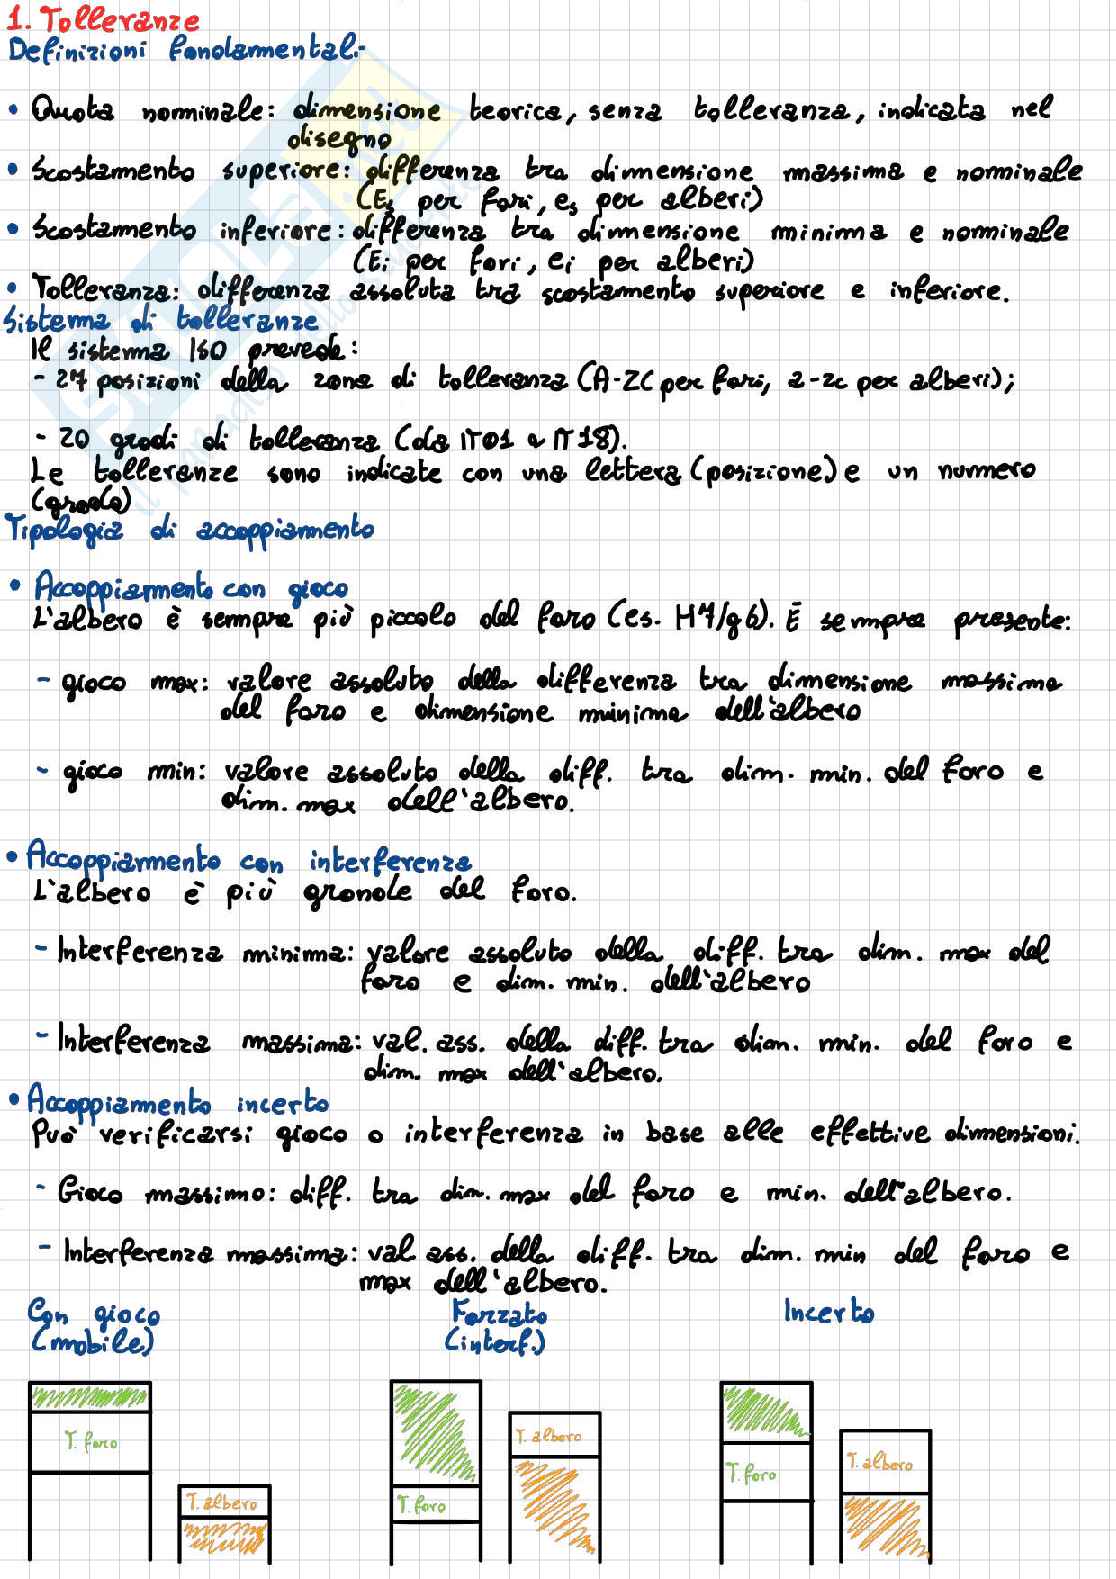 1. Tolleranze
Definizioni fondamentali
• Quota nominale: dimensione teorica, senza tolleranza, indicata nel
disegno
• Scostamento superiore: differenza tra dimensione massima e nominale
(Es per fori, es per alberi)
• Scostamento inferiore: differenza tra dimensione minima e nominale
(Ei per fori, ei per alberi)
• Tolleranza: differenza assoluta tra scostamento superiore e inferiore.
Sistema di tolleranze
Il sistema ISO prevede:
- 27 posizioni della zona di tolleranza (A-ZC per fori, a-zc per alberi);
- 20 gradi di tolleranza (da IT01 a IT18).
Le tolleranze sono indicate con una lettera (posizione) e un numero
(grado)
Tipologia di accoppiamento
• Accoppiamento con gioco
L'albero è sempre più piccolo del foro (es. H7/g6). È sempre presente:
- gioco max: valore assoluto della differenza tra dimensione massima
del foro e dimensione minima dell'albero
- gioco min: valore assoluto della diff. tra dim. min. del foro e
dim. max dell'albero.
• Accoppiamento con interferenza
L'albero è più grande del foro.
- Interferenza minima: valore assoluto della diff. tra dim. max del
foro e dim. min. dell'albero
- Interferenza massima: val. ass. della diff. tra dim. min. del foro e
dim. max dell'albero.
• Accoppiamento incerto
Può verificarsi gioco o interferenza in base alle effettive dimensioni.
- Gioco massimo: diff. tra dim. max del foro e min. dell'albero.
- Interferenza massima: val. ass. della diff. tra dim. min del foro e
max dell'albero.
Con gioco Forzato Incerto
(mobile) (interf.)
T. foro T. albero T. foro T. albero T. foro T. albero